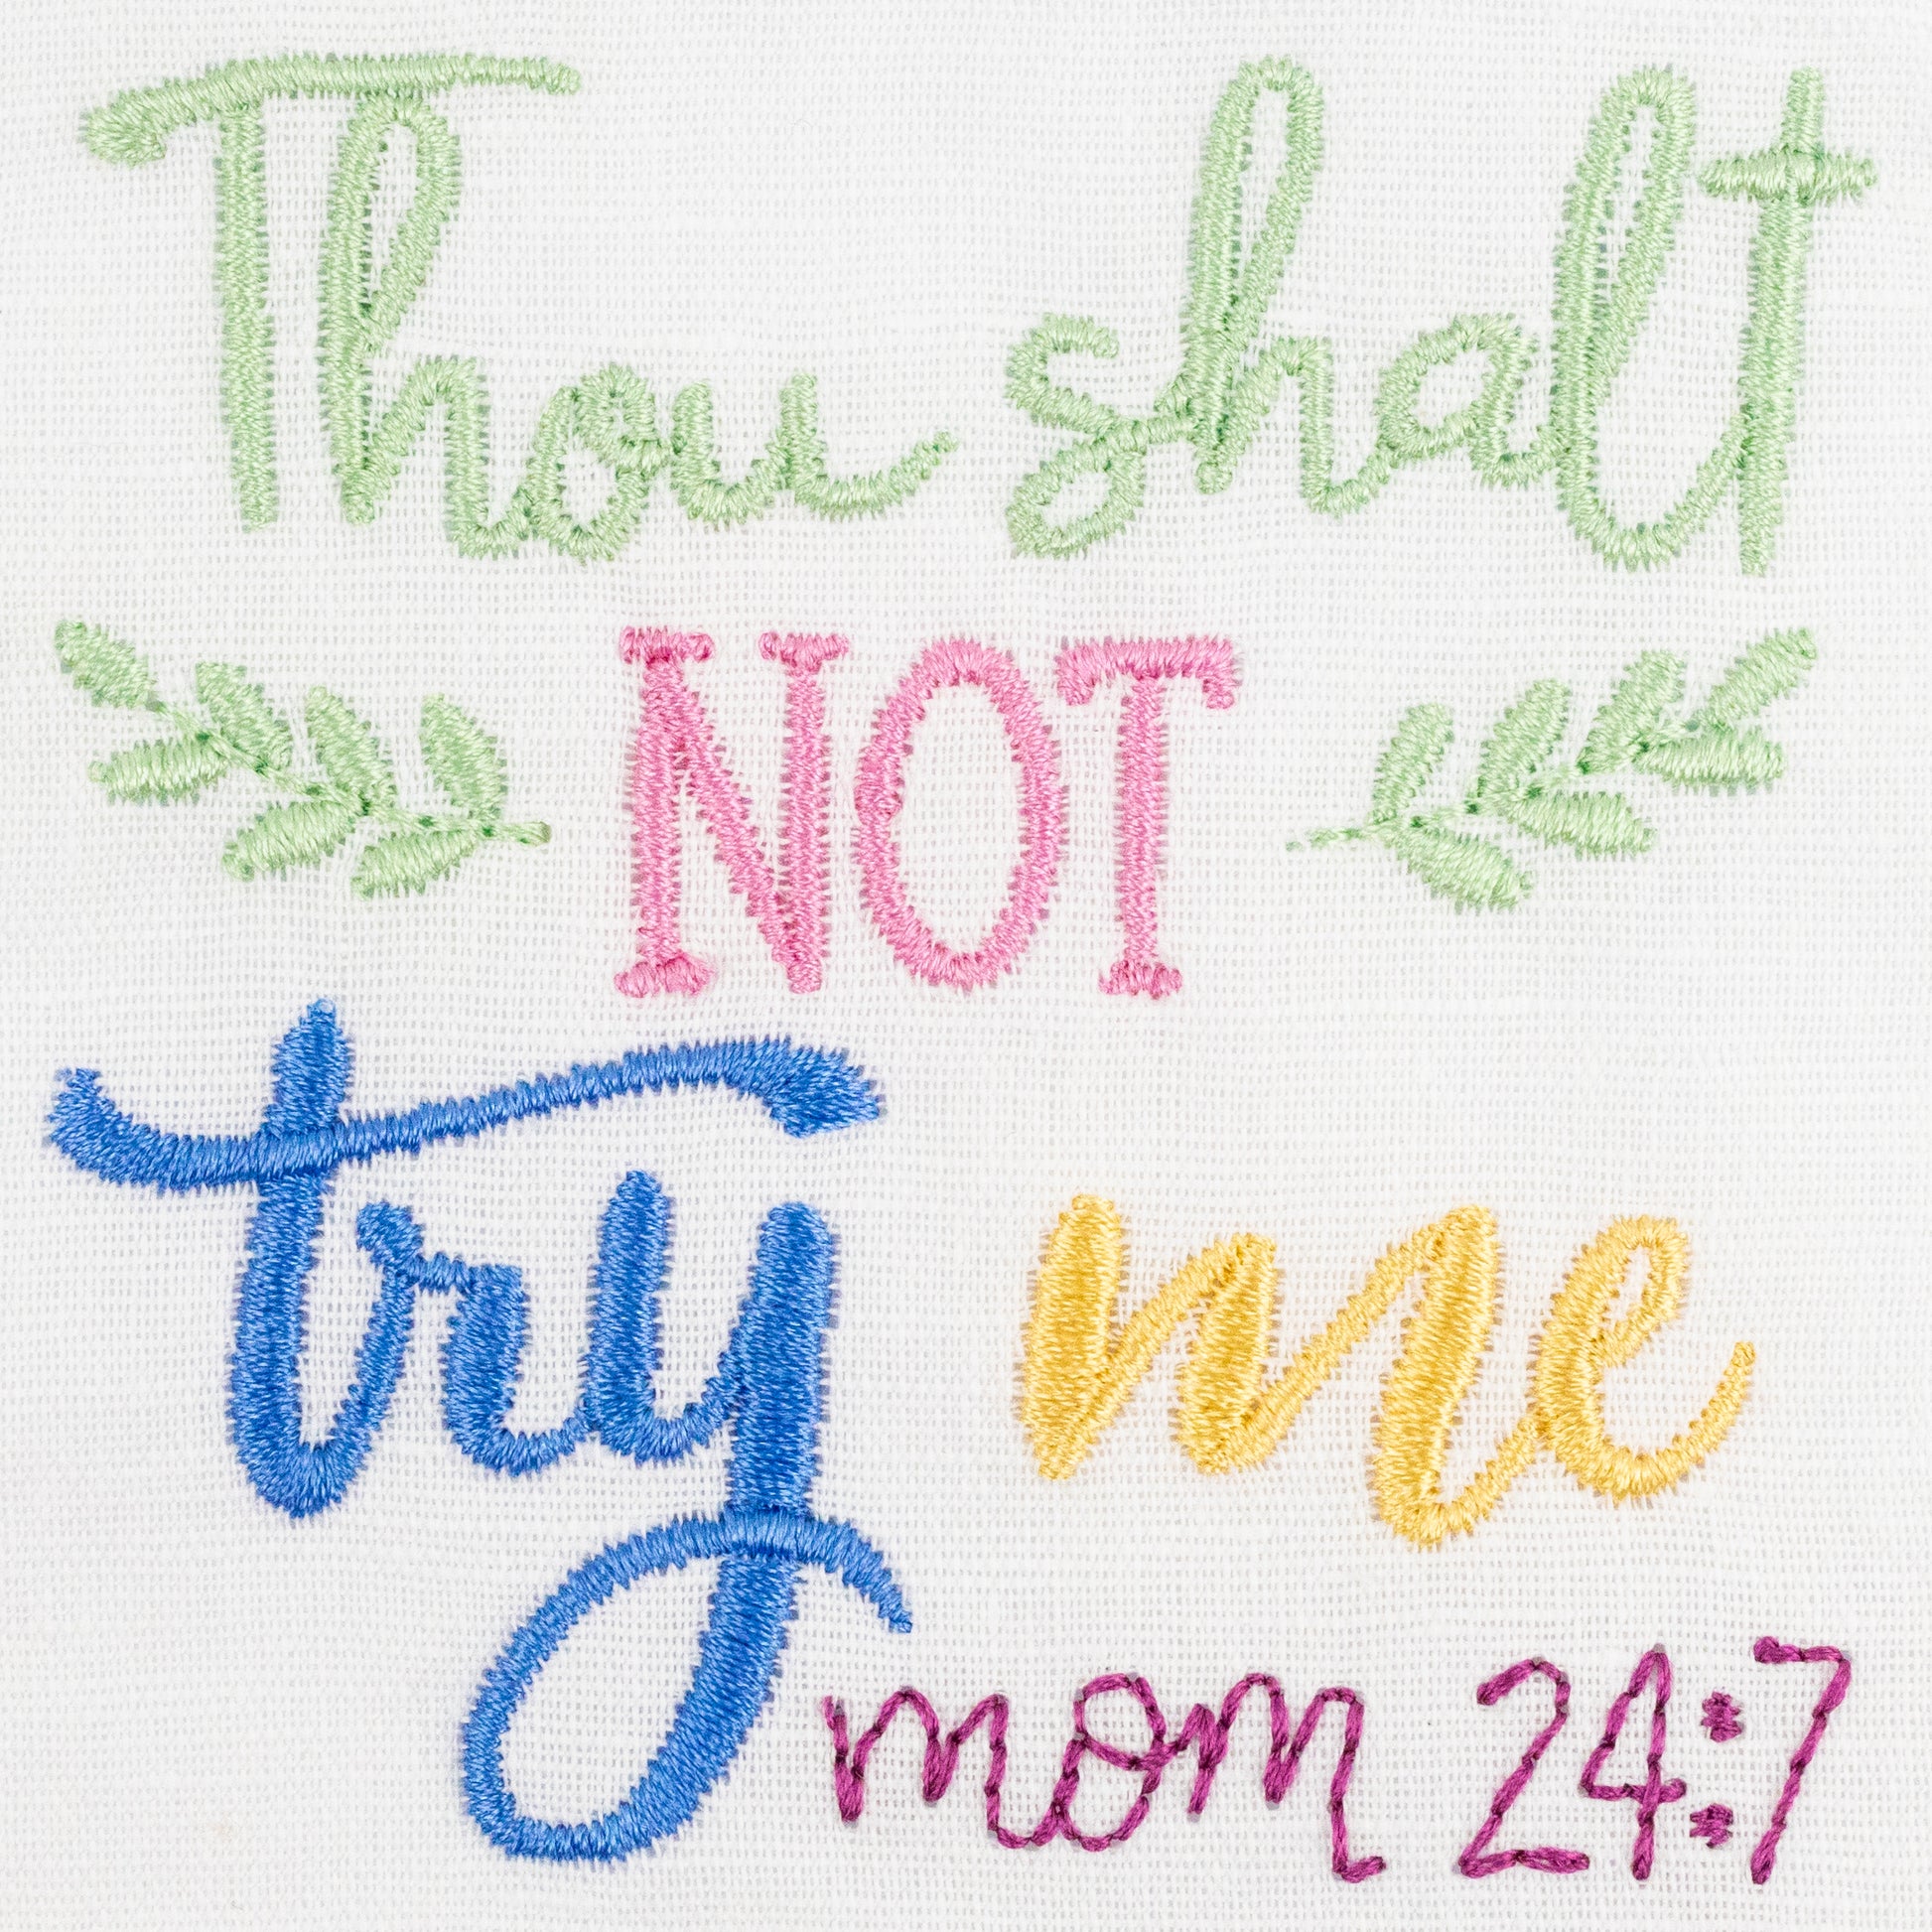 Thou shalt
NOT
try me
mom 24:7